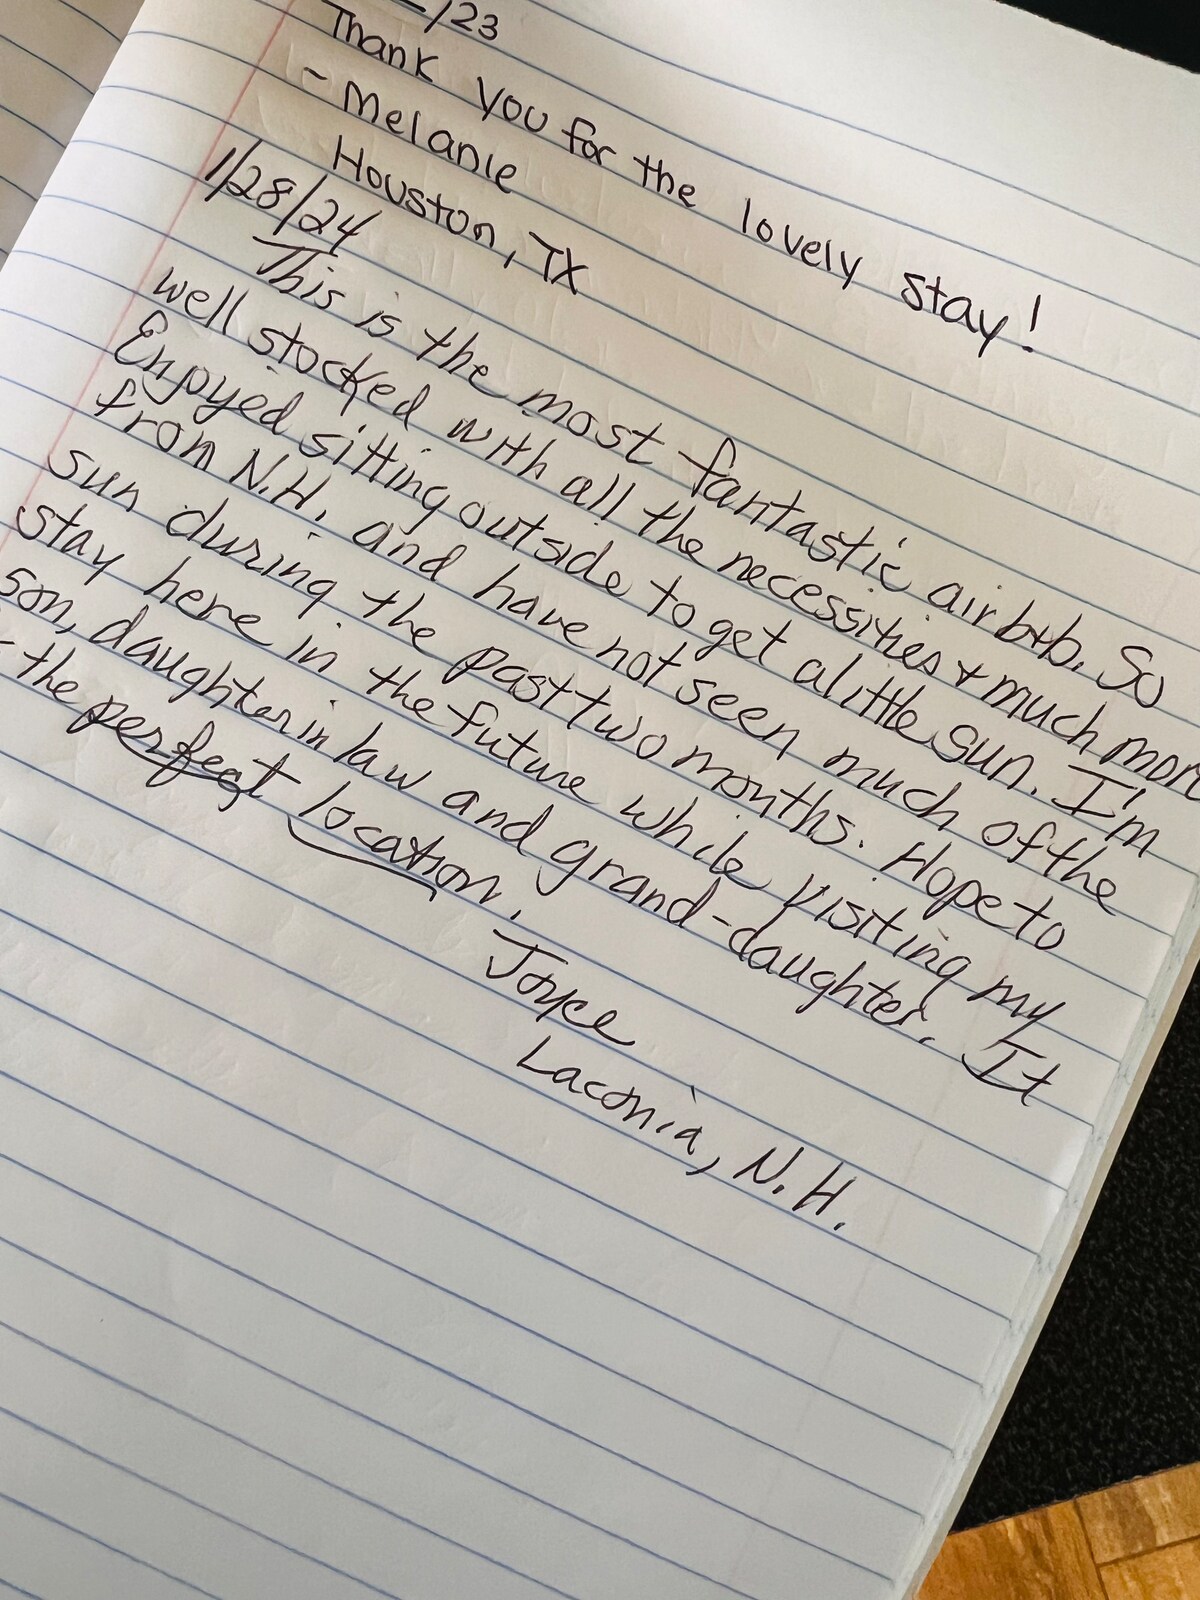 /23
Thank you for the lovely stay!
- Melanie
Houston, TX
1/28/24
This is the most fantastic airb+b. So
well stocked with all the necessities + much more
Enjoyed sitting outside to get a little sun. I'm
from N.H. and have not seen much of the
sun during the past two months. Hope to
stay here in the future while visiting my
son, daughter in law and grand-daughter. It
the perfect location.
Joyce
Laconia, N.H.